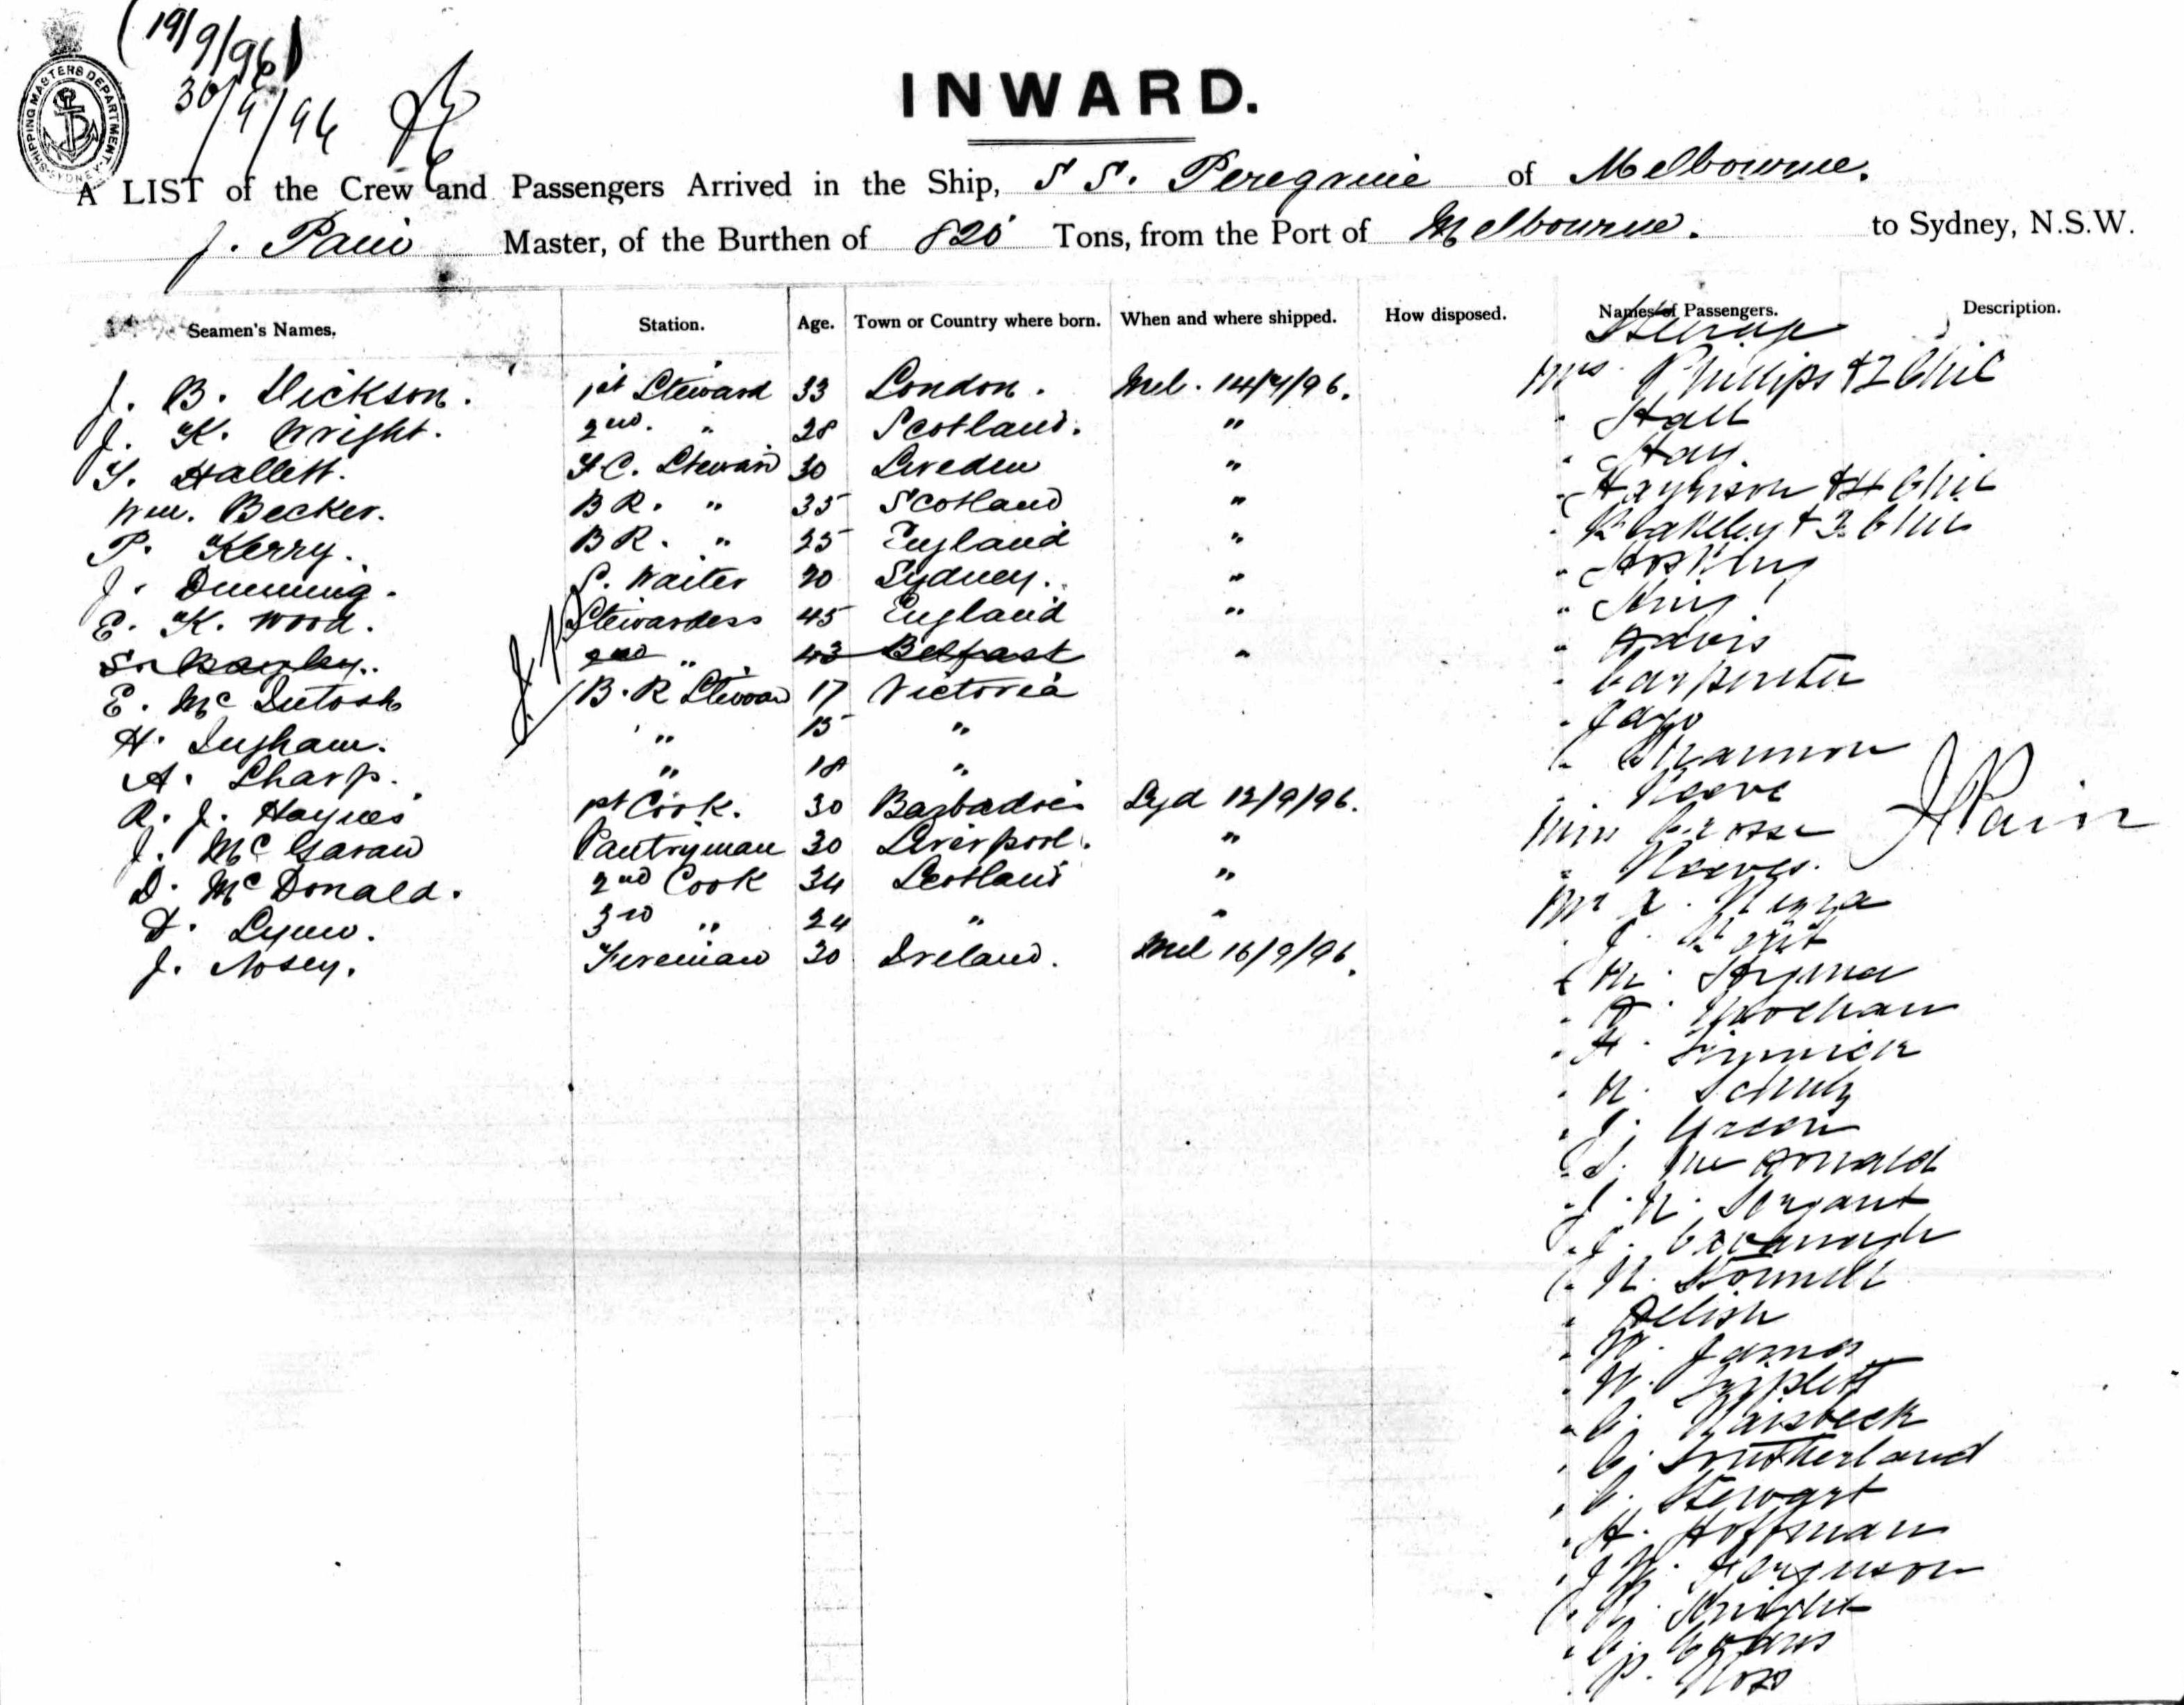 (19/9/96)
30/9/96
SHIPPING MASTERS DEPARTMENT SYDNEY
INWARD.
A LIST of the Crew and Passengers Arrived in the Ship, S S. Peregrine of Melbourne.
J. Pain Master, of the Burthen of 820 Tons, from the Port of Melbourne. to Sydney, N.S.W.
Seamen's Names. Station. Age. Town or Country where born. When and where shipped. How disposed. Names of Passengers. Description.
J. B. Dickson. 1st Steward 33 London. Mel. 14/9/96.
J. K. Wright. 2nd. " 28 Scotland. "
Hallett. F C. Steward 30 Sweden "
Wm. Becker. B R. " 35 Scotland "
P. Kerry. B R. " 25 England "
J. Dunning. S. Waiter 20 Sydney. "
E. K. Wood. Stewardess 45 England "
2nd " 43 Belfast "
E. McIntosh B. R Steward 17 Victoria
H. Ingham. " 15 "
A. Sharp. " 18 "
R. J. Haynes 1st Cook. 30 Barbadoes Syd 12/9/96.
J. McGavan Pantryman 30 Liverpool. "
D. McDonald. 2nd Cook 34 Scotland "
Lynn. 3rd " 24 " "
J. Nosey. Fireman 30 Ireland. Mel 16/9/96.
Steerage
Mrs. Phillips & 2 Chil
" Hall
" Hay.
" Harrison & 4 Chil
" Blakeley & 3 Chil
" Hoskins
" King
" Davis
" Carpenter
" Jago
" Shannon
" Reeve
Miss Crosse
" Reeves.
Mr
" J.
" M.
"
" H.
" R. Schulz
" J. Green
" McDonald
" J. R. Sergant
" J. Cavanagh
"
"
" W. James
" W. Triplett
" C. Naisbeck
" C. Sutherland
" C. Stewart
" H. Hoffman
" J W. Ferguson
" Knight
" C. Evans
" P. Ross
J Pain